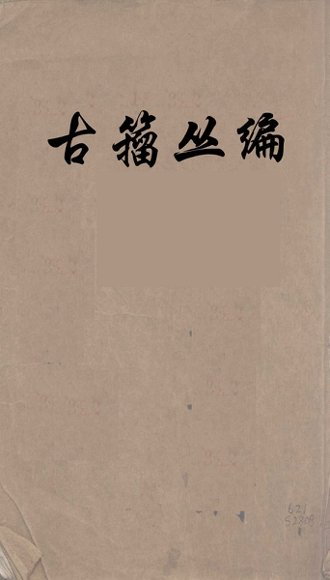 古籀丛编
621